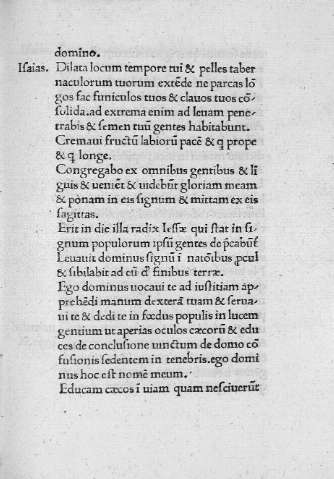 domino.
Isaias. Dilata locum tempore tui & pelles taber
naculorum tuorum extēde ne parcas lō
gos fac funiculos tuos & clauos tuos cō-
solida.ad extrema enim ad leuam pene-
trabis & semen tuū gentes habitabunt.
Cremaui fructū labiorū pacē & q prope
& q longe.
Congregabo ex omnibus gentibus & lī
guis & ueniēt & uidebūt gloriam meam
& ponam in eis signum & mittam ex eis
sagittas.
Erit in die illa radix Iessæ qui stat in si
gnum populorum ipsū gentes de
Leuauit dominus signū ī natōībus ꝓcul
& sibilabit ad eū d finibus terræ.
Ego dominus uocaui te ad iustitiam ap-
prehēdi manum dexterā tuam & serua-
ui te & dedi te in fœdus populis in lucem
gentium ut aperias oculos cæcorū & edu
ces de conclusione uinctum de domo cō
fusionis sedentem in tenebris.ego domi
nus hoc est nomē meum.
Educam cæcos ī uiam quam nesciuerūt